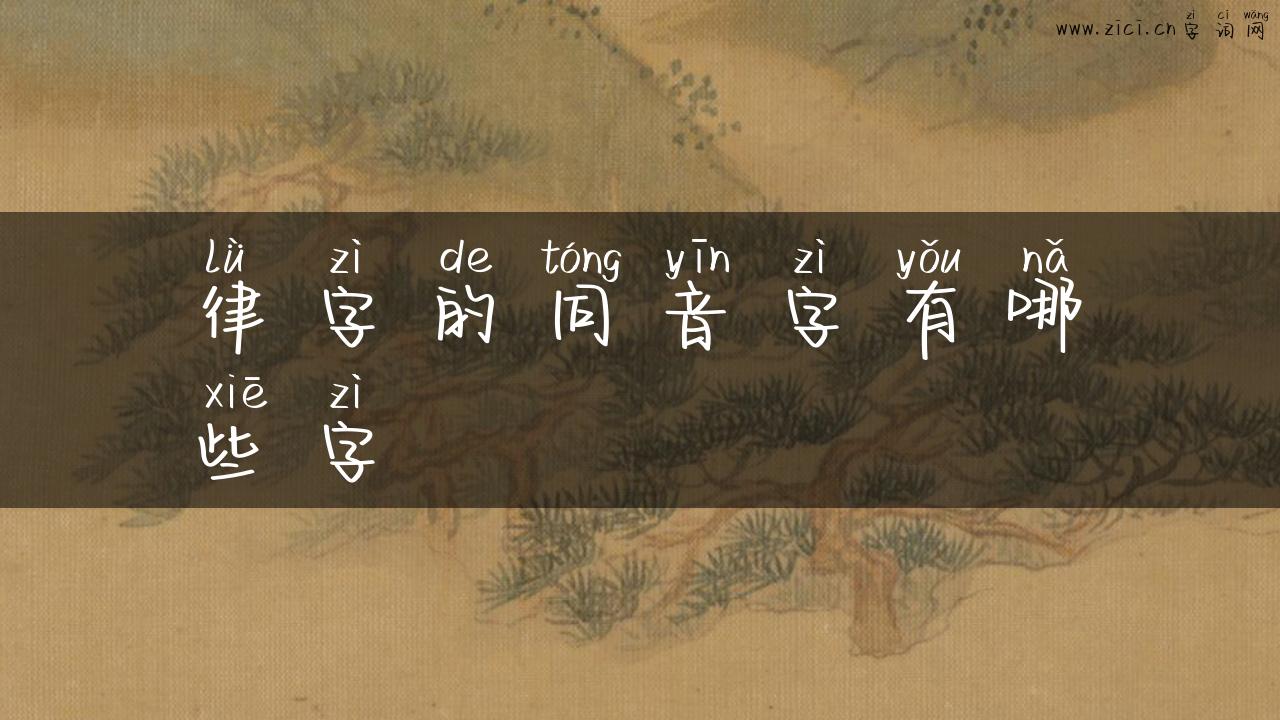 zì cí wǎng
www.zici.cn字词网
lǜ zì de tóng yīn zì yǒu nǎ
律字的同音字有哪
xiē zì
些字